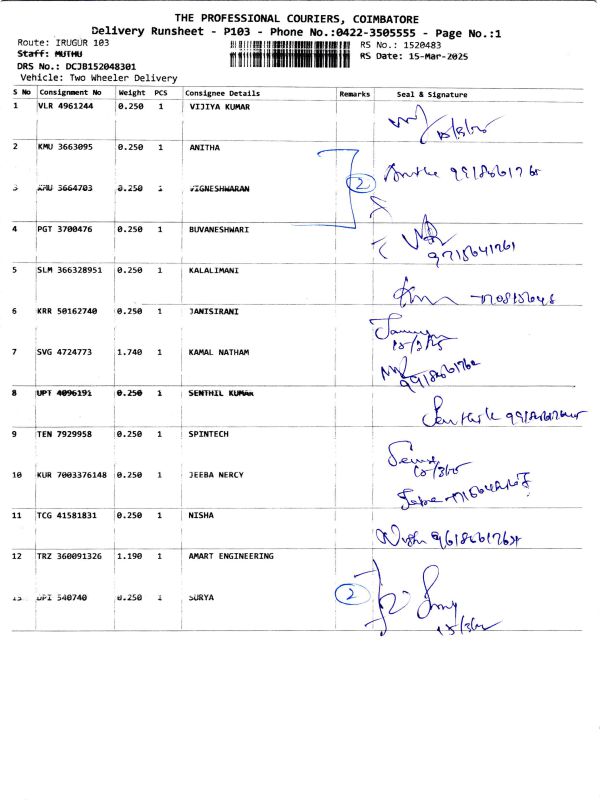 THE PROFESSIONAL COURIERS, COIMBATORE
Delivery Runsheet - P103 - Phone No.:0422-3505555 - Page No.:1
Route: IRUGUR 103 RS No.: 1520483
Staff: MUTHU RS Date: 15-Mar-2025
DRS No.: DCJB152048301
Vehicle: Two Wheeler Delivery
S No Consignment No Weight PCS Consignee Details Remarks Seal & Signature
1 VLR 4961244 0.250 1 VIJIYA KUMAR
15/3/25
2 KMU 3663095 0.250 1 ANITHA
2
3 KMU 3664703 0.250 1 VIGNESHWARAN
4 PGT 3700476 0.250 1 BUVANESHWARI
5 SLM 366328951 0.250 1 KALALIMANI
6 KRR 50162740 0.250 1 JANISIRANI
15/3/25
7 SVG 4724773 1.740 1 KAMAL NATHAM
8 UPT 4096191 0.250 1 SENTHIL KUMAR
9 TEN 7929958 0.250 1 SPINTECH
10 KUR 7003376148 0.250 1 JEEBA NERCY
11 TCG 41581831 0.250 1 NISHA
12 TRZ 360091326 1.190 1 AMART ENGINEERING
2
13 DPI 540740 0.250 1 SURYA